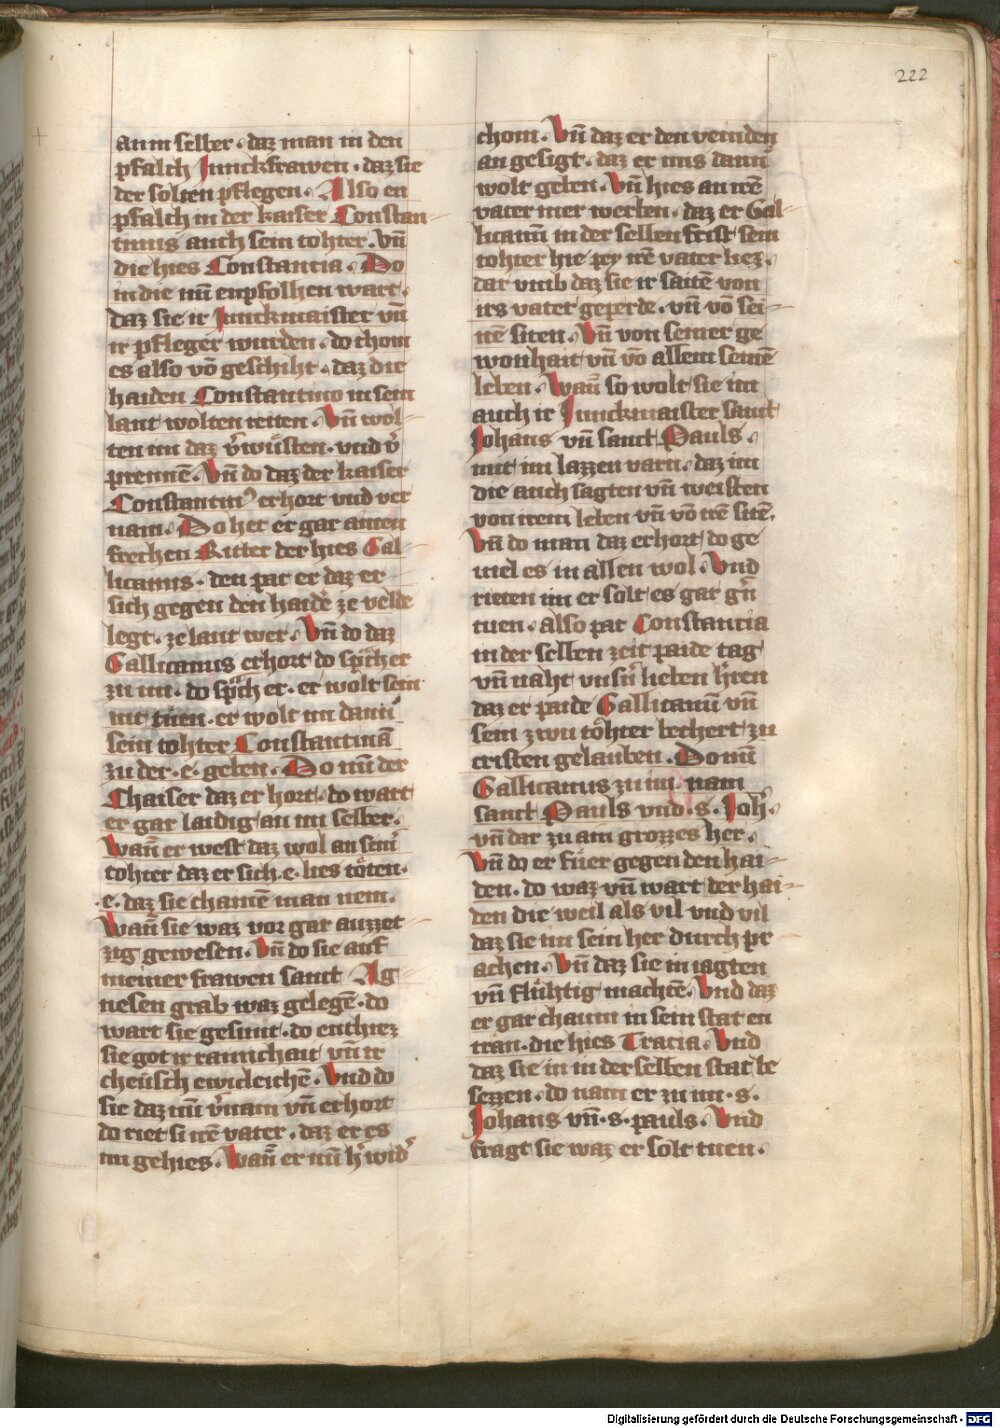 222
an in selber · daz man in den
pfalch Junckfrawen · daz sie
der solten pflegen · Also en
pfalch in der kaiser Constan
tinus auch sein tohter · Vn̄
die hies Constancia · Do
in die nu̅ enpfolhen wart ·
daz sie ir Junckmaister vn̄
ir pfleger wurden · do chom
es also vō geschiht · daz die
haiden Constantino in sein
lant wolten reiten · Vn̄ wol
ten im daz v̓wüsten · vnd v̓
prennē · Vn̄ do daz der kaiser
Constantin⁹ erhort vnd ver
nam · Do het er gar ainen
frechen Ritter der hies Gal
licanus · den pat er daz er
sich gegen den haidē ze velde
legt · ze lant wer · Vn̄ do daz
Gallicanus erhort do sp̄ch er
zu im · do sp̄ch er · er wolt sein
nit tuen · er wolt im dann̄
sein tohter Constantinā
zu der · e · geben · Do nu̅ der
Chaiser daz er hort · do wart
er gar laidig an im selber ·
Wan̄ er west daz wol an sein̓
tohter daz er sich · e · lies töten ·
· e · daz sie chainē man nem ·
Wan̄ sie waz vor gar auzzet
zig gewesen · Vn̄ do sie auf
meiner frawen sant Ag
nesen grab waz gelegē · do
wart sie gesunt · do enthiez
sie got ir rainichait vn̄ ir
cheüsch ewicleichē · Vnd do
sie daz nu̅ v̓nam vn̄ erhort
do riet si irē vater · daz er es
im gehies · Wan̄ er nu̅ h̓ wid̓
chom · Vn̄ daz er den veinden
an gesigt · daz er ims dann̄
wolt geben · Vn̄ hies an irē
vater mer werben · daz er Gal
licanu̅ in der selben frist sein
tohter hie pey irē vater liez ·
dar vmb daz sie ir saitē von
irs vater geperde · vn̄ vō sei
nē siten · Vn̄ von seiner ge
wonhait vn̄ vō allem seinē
leben · Wan̄ so wolt sie im
auch ir Junckmaister sant
Johans vn̄ sant Pauls ·
mit im lazzen varn · daz im
die auch sagten vn̄ weisten
von irem leben vn̄ vō irē sitē ·
Vn̄ do man daz erhort do ge
viel es in allen wol · Vnd
rieten im er solt es gar g̓n
tuen · also pat Constancia
in der selben zeit paide tag
vn̄ naht vnsn̄ lieben h̓ren
daz er paide Gallicanu̅ vn̄
sein zwu töhter bechert zu
cristen gelauben · Do nu̅
Gallicanus zu im · nam
sant Pauls vnd · s · Joh̓ ·
vn̄ dar zu ain grozzes her ·
Vn̄ do er füer gegen den hai
den · do waz vn̄ wart der hai
den die weil als vil vnd vil
daz sie im sein her durch pr
achen · Vn̄ daz sie in iagten
vn̄ flühtig machtē · Vnd daz
er gar chaum in sein stat en
tran · die hies Tracia · Vnd
daz sie in in der selben stat be
sezzen · do nam er zu im · s ·
Johans vn̄ · s · pauls · Vnd
fragt sie waz er solt tuen ·
Digitalisierung gefördert durch die Deutsche Forschungsgemeinschaft - DFG